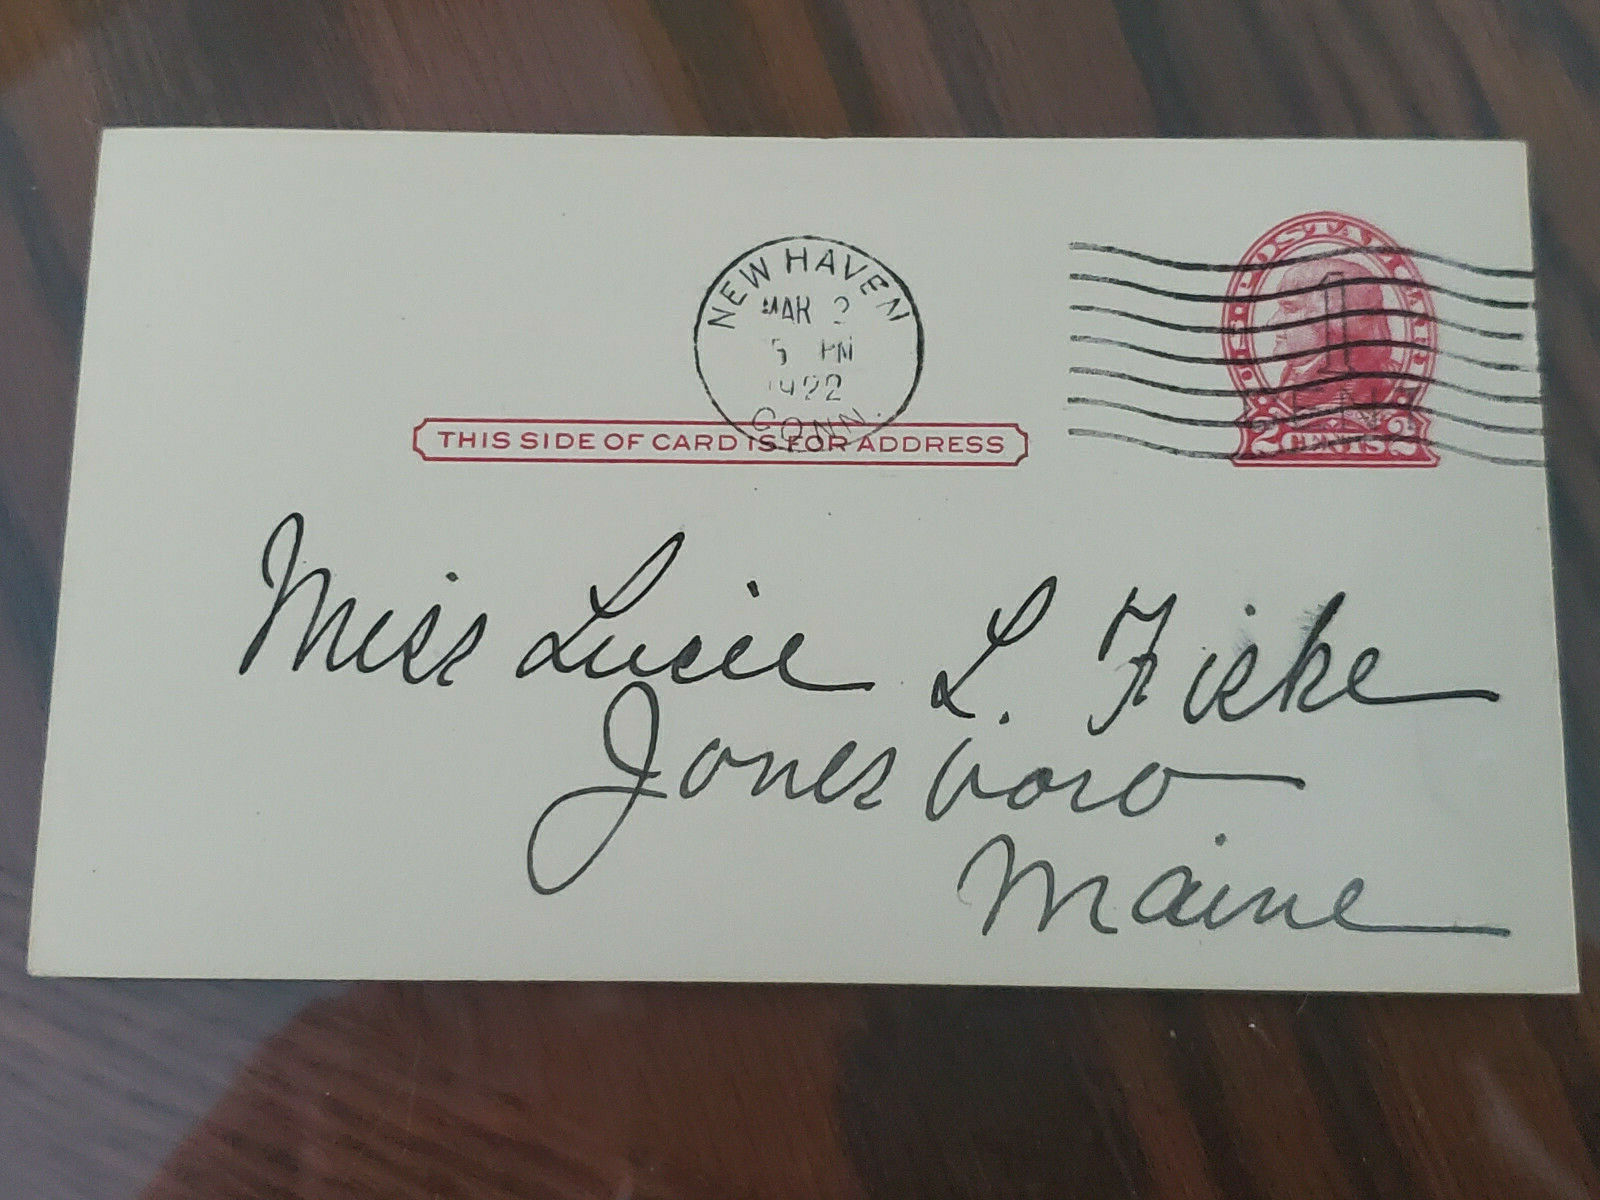 NEW HAVEN
MAR 2
5 PM
1922
CONN.
U.S. POSTAL CARD
1 CENT
2 CENTS 2
THIS SIDE OF CARD IS FOR ADDRESS
Miss Lucie L. Fiske
Jonesboro
Maine